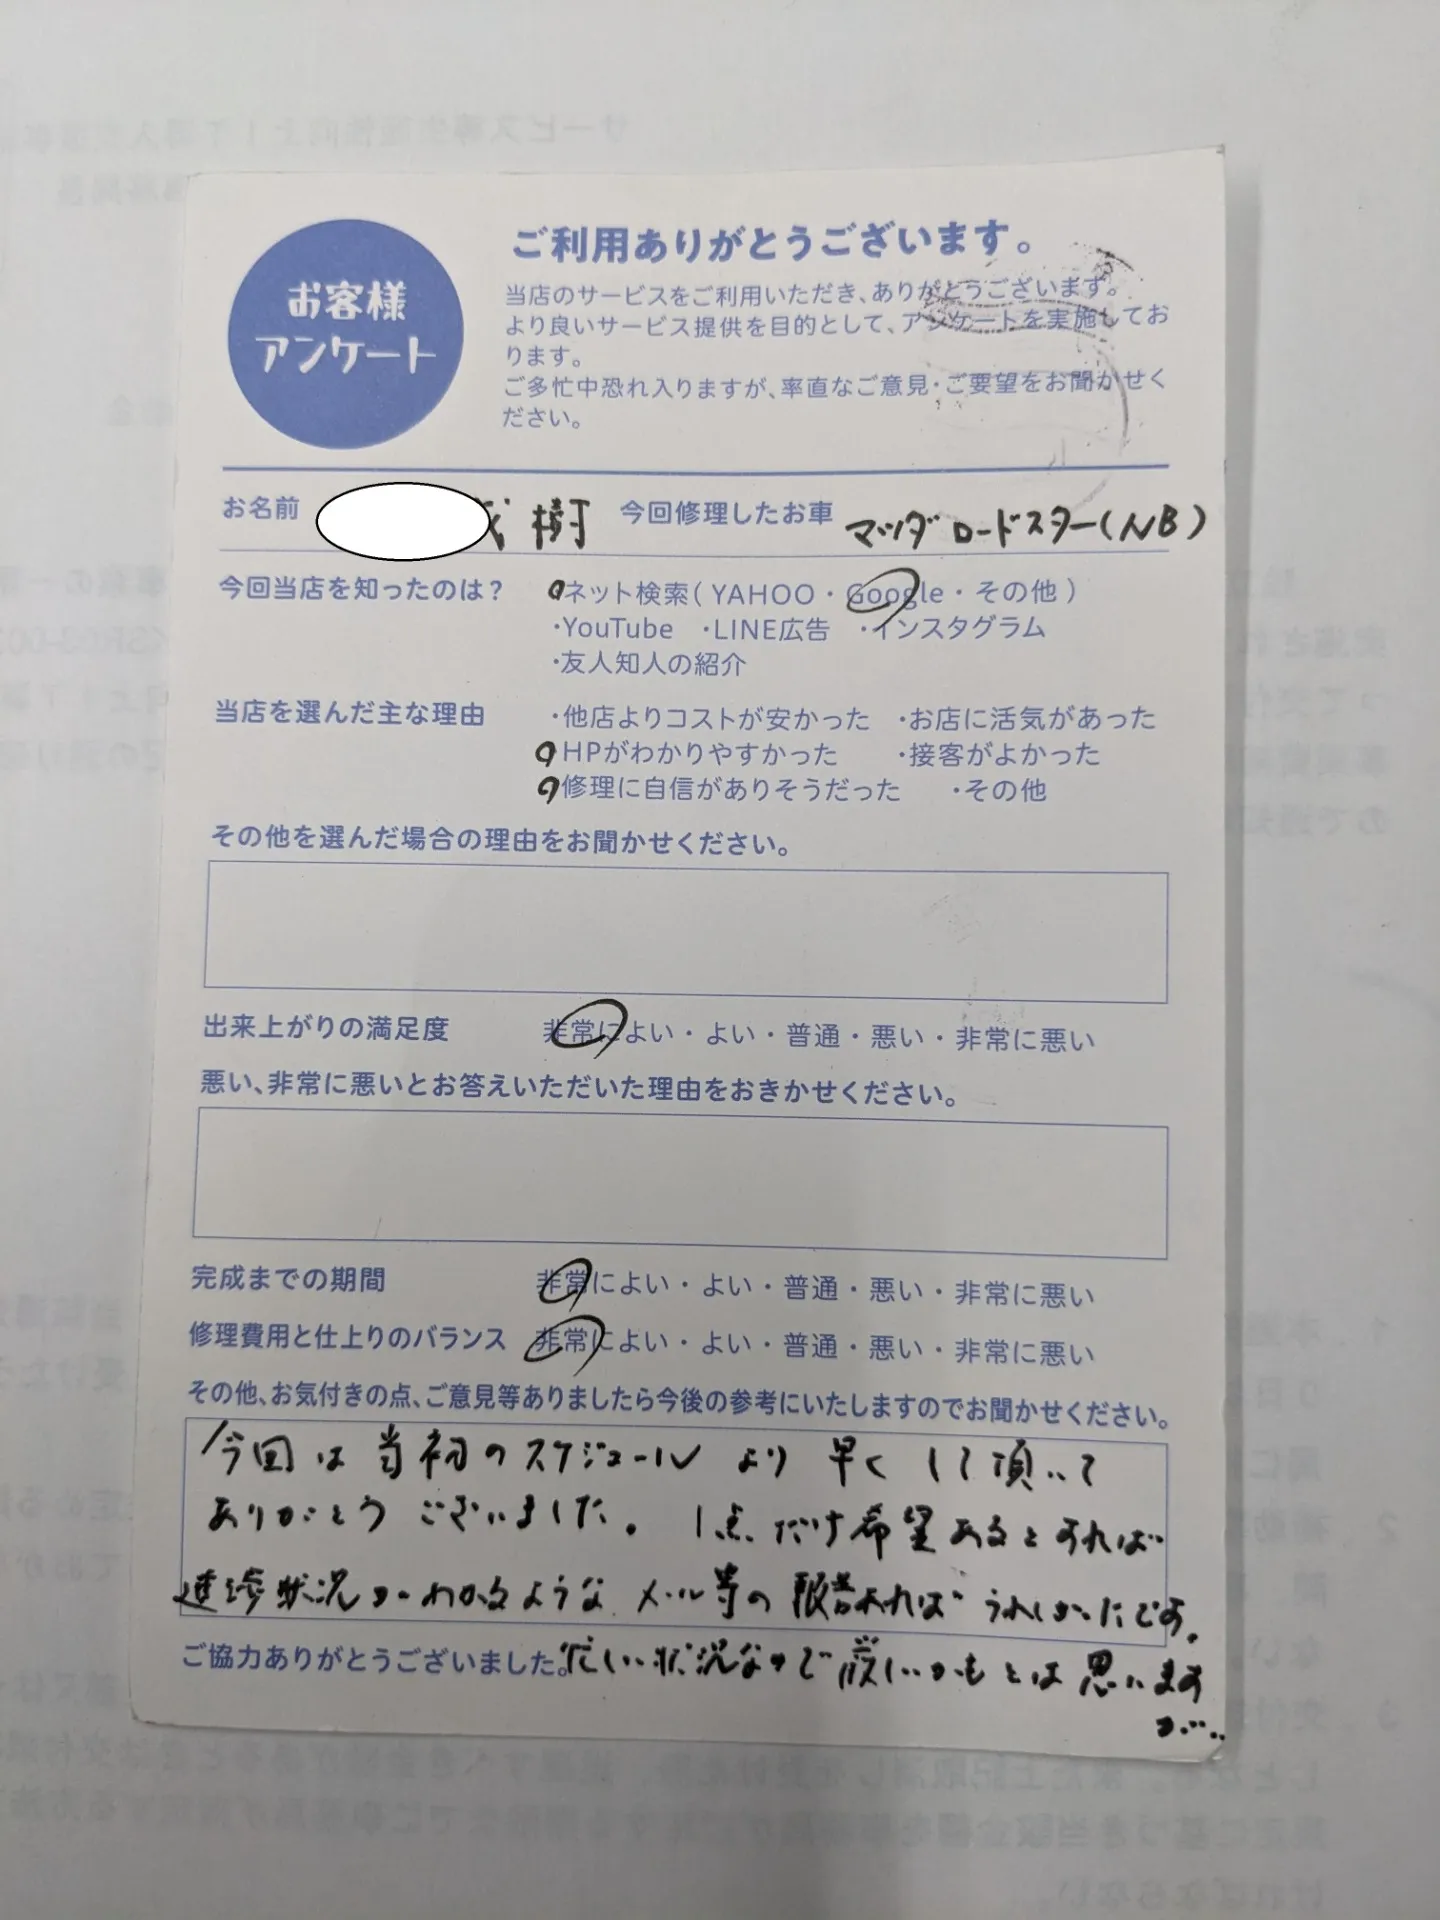 お客様
アンケート
ご利用ありがとうございます。
当店のサービスをご利用いただき、ありがとうございます。
より良いサービス提供を目的として、アンケートを実施してお
ります。
ご多忙中恐れ入りますが、率直なご意見・ご要望をお聞かせく
ださい。
お名前 樹 今回修理したお車 マツダロードスター(NB)
今回当店を知ったのは? ・ネット検索( YAHOO・Google・その他 )
・YouTube ・LINE広告 ・インスタグラム
・友人知人の紹介
当店を選んだ主な理由 ・他店よりコストが安かった ・お店に活気があった
・HPがわかりやすかった ・接客がよかった
・修理に自信がありそうだった ・その他
その他を選んだ場合の理由をお聞かせください。
出来上がりの満足度 非常によい・よい・普通・悪い・非常に悪い
悪い、非常に悪いとお答えいただいた理由をおきかせください。
完成までの期間 非常によい・よい・普通・悪い・非常に悪い
修理費用と仕上りのバランス 非常によい・よい・普通・悪い・非常に悪い
その他、お気付きの点、ご意見等ありましたら今後の参考にいたしますのでお聞かせください。
今回は当初のスケジュールより早くして頂いて
ありがとうございました。1点だけ希望あるとすれば
進捗状況がわかるようなメール等の報告あればうれしかったです。
ご協力ありがとうございました。忙しい状況なので厳しいかもとは思います
が…